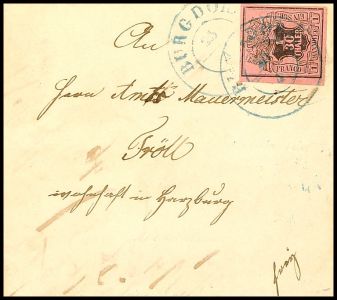 BURGDORF
1/30 THALER
FRANCO
An
Herrn Amts Mauermeister
Tröll
wohnhaft in Harzburg
frei